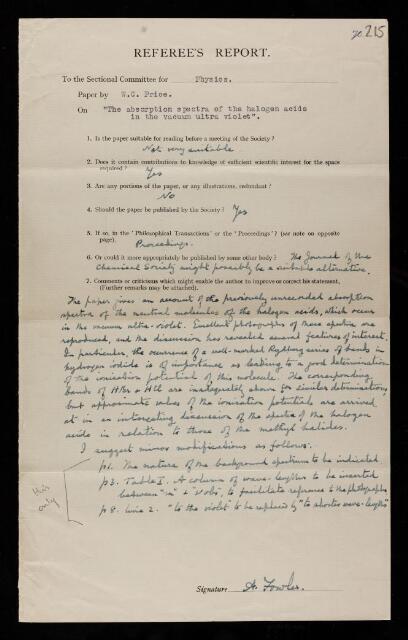 215
REFEREE'S REPORT.
To the Sectional Committee for Physics.
Paper by W.C. Price.
On "The absorption spectra of the halogen acids
in the vacuum ultra violet".
1. Is the paper suitable for reading before a meeting of the Society?
Not very suitable.
2. Does it contain contributions to knowledge of sufficient scientific interest for the space
required? Yes
3. Are any portions of the paper, or any illustrations, redundant?
No
4. Should the paper be published by the Society? Yes
5. If so, in the 'Philosophical Transactions' or the 'Proceedings'? (see note on opposite
page). Proceedings.
6. Or could it more appropriately be published by some other body? The Journal of the
Chemical Society might possibly be a suitable alternative.
7. Comments or criticisms which might enable the author to improve or correct his statement.
(Further remarks may be attached).
The paper gives an account of the previously unrecorded absorption
spectra of the neutral molecules of the halogen acids, which occur
in the vacuum ultra-violet. Excellent photographs of these spectra are
reproduced, and the discussion has revealed several features of interest.
In particular, the occurrence of a well-marked Rydberg series of bands in
hydrogen iodide is of importance as leading to a good determination
of the ionisation potential of this molecule. The corresponding
bands of HBr & HCl are inadequately shown for similar determinations,
but approximate values of the ionisation potentials are arrived
at in an interesting discussion of the spectra of the halogen
acids in relation to those of the methyl halides.
I suggest minor modifications as follows:
p1. The nature of the background spectrum to be indicated.
p3. Table I. A column of wave-lengths to be inserted
between "n" & "ν obs", to facilitate reference to the photographs
p8. line 2. "to the violet" to be replaced by "to shorter wave-lengths"
this
only
Signature A. Fowler.